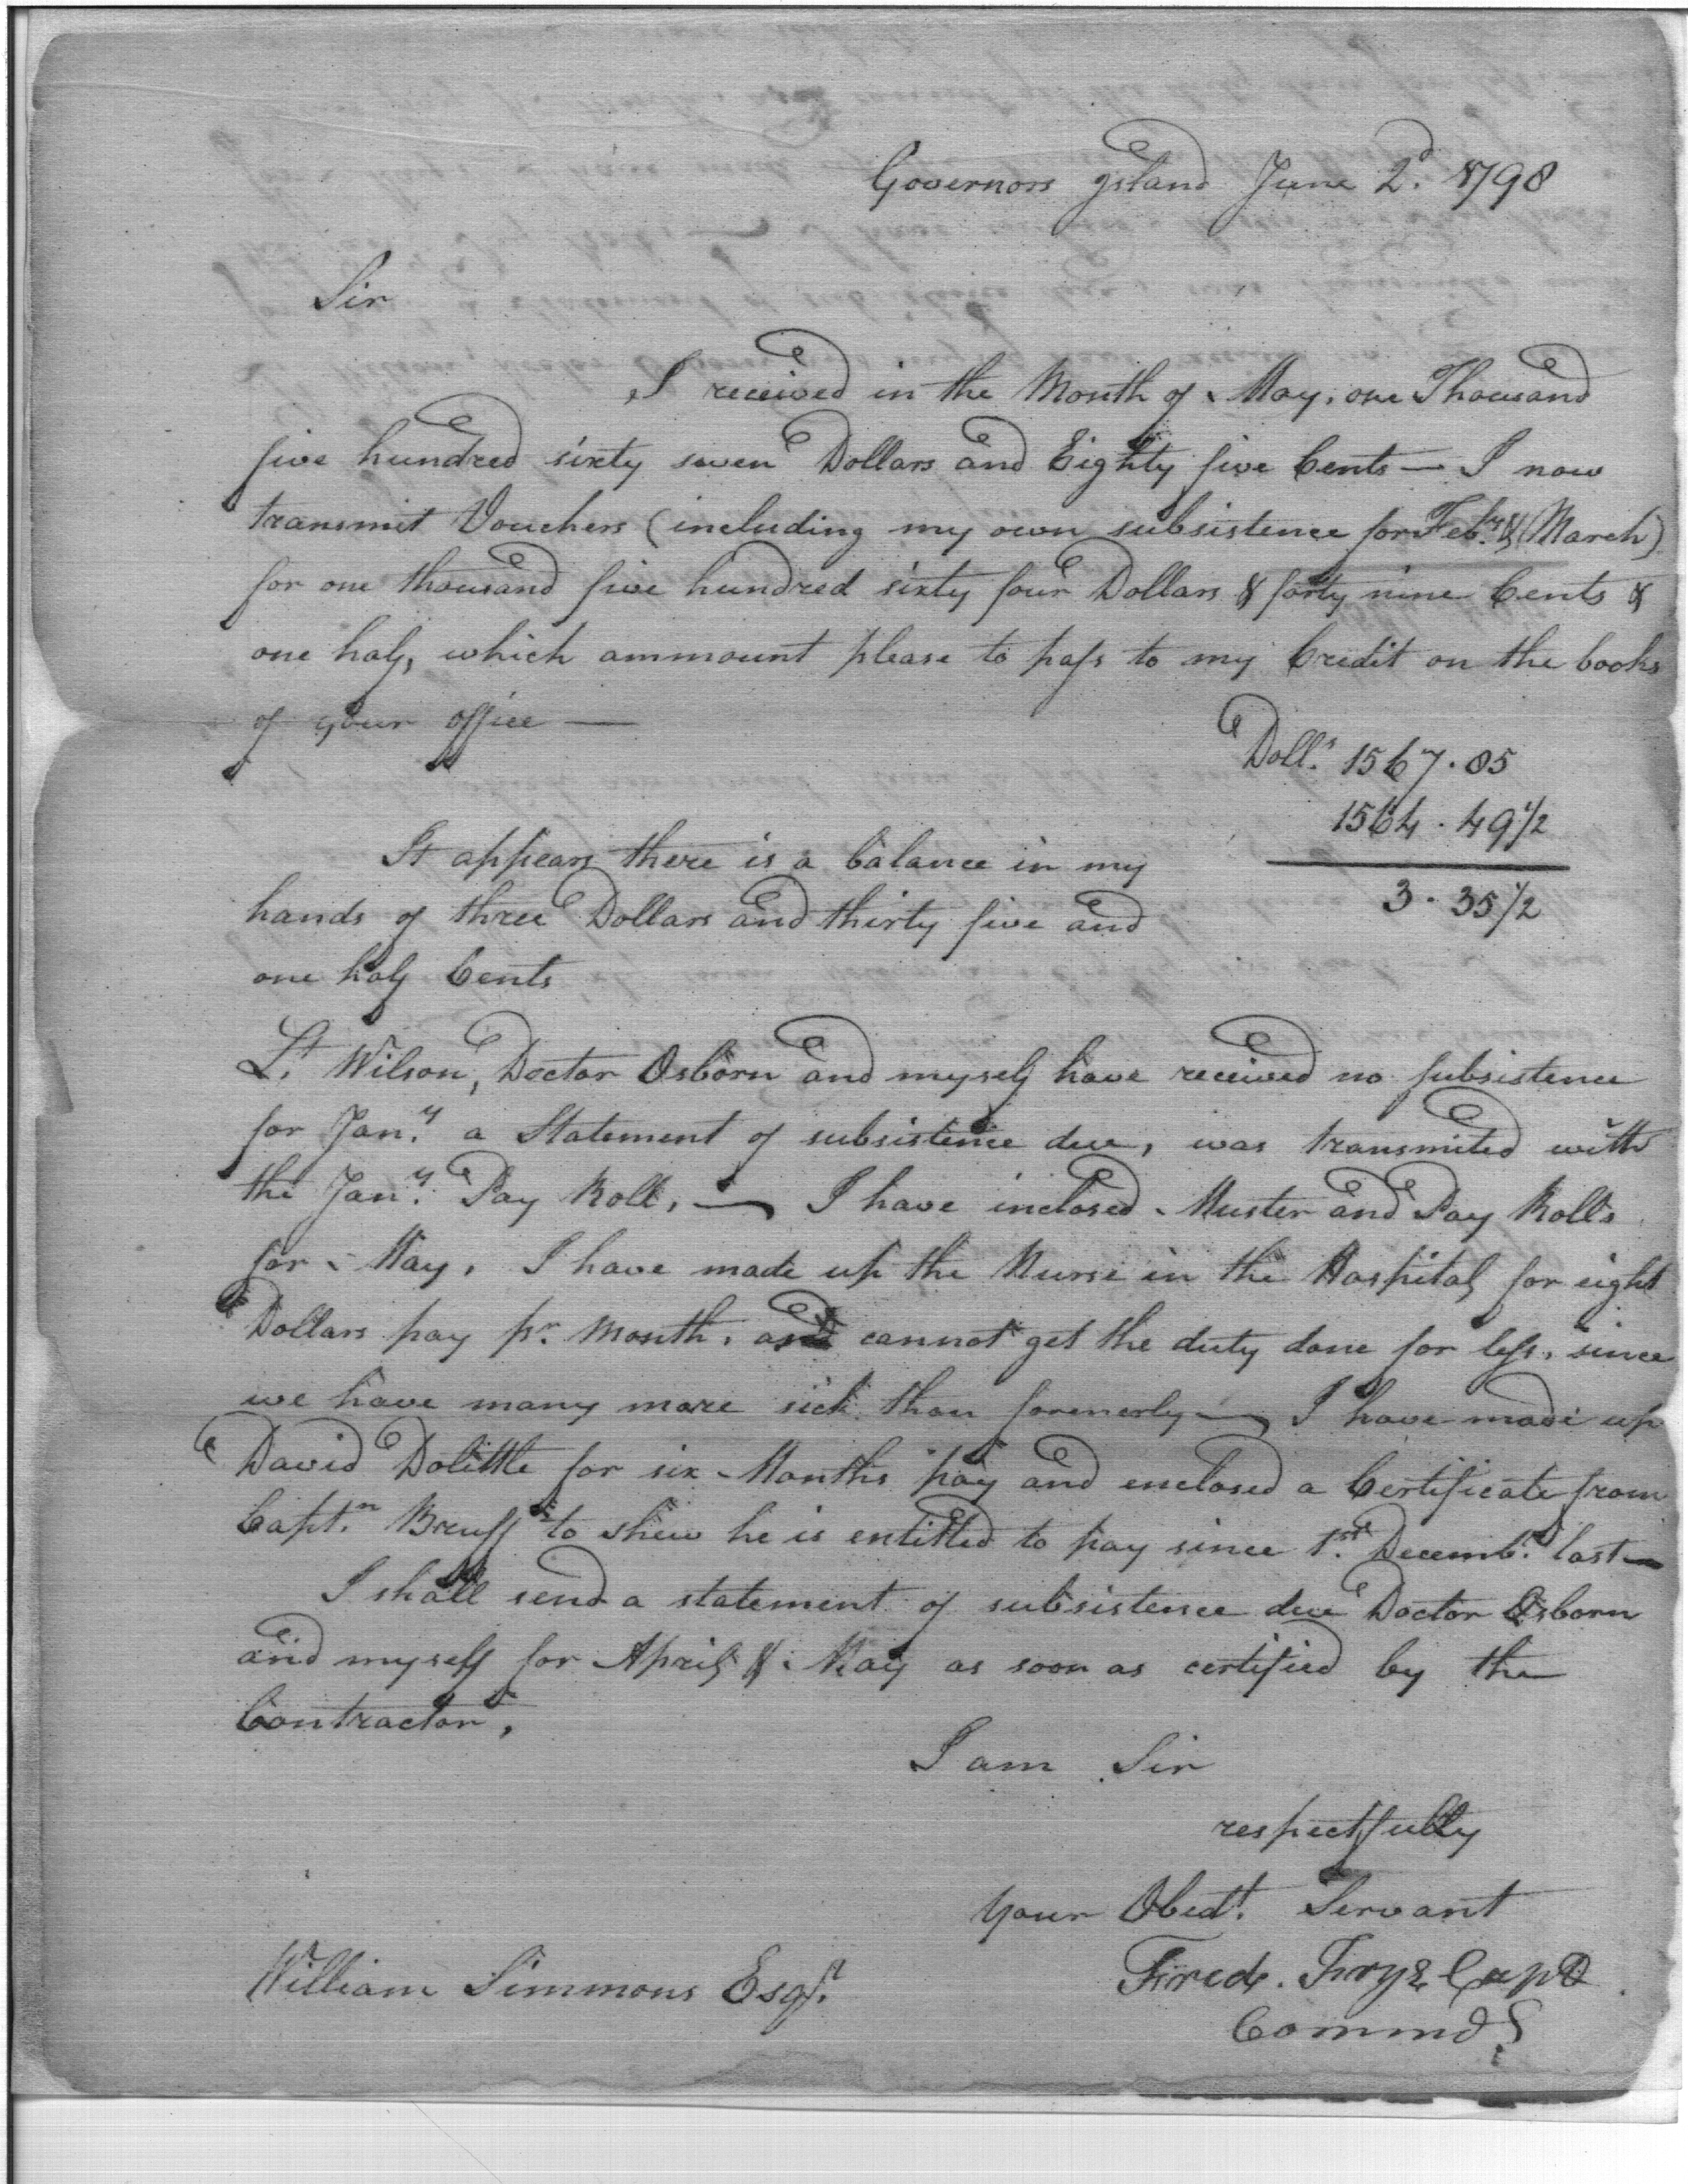 Governors Island June 2d. 1798
Sir
I received in the Month of May, one Thousand
five hundred sixty seven Dollars and Eighty five Cents — I now
transmit Vouchers (including my own subsistence for Feby. & March)
for one thousand five hundred sixty four Dollars & forty nine Cents &
one half, which ammount please to pass to my Credit on the books
of your office —
Dolls. 1567.85
1564.49 1/2
3.35 1/2
It appears there is a balance in my
hands of three Dollars and thirty five and
one half Cents
Lt. Wilson, Doctor Osborn and myself have received no subsistence
for Jany. a Statement of subsistence due, was transmited with
the Jany. Pay Roll, — I have inclosed Muster and Pay Rolls
for May, I have made up the Nurse in the Hospital for eight
Dollars pay pr. Month, and cannot get the duty done for less, since
we have many more sick than formerly — I have made up
David Dolittle for six Months pay and enclosed a Certificate from
Captn. Bruff to shew he is entitled to pay since 1st. Decembr. last —
I shall send a statement of subsistence due Doctor Osborn
and myself for April & May as soon as certified by the
Contractor,
I am Sir
respectfully
your Obedt. Servant
Fredk. Frye Capt
Commdg
William Simmons Esqr.